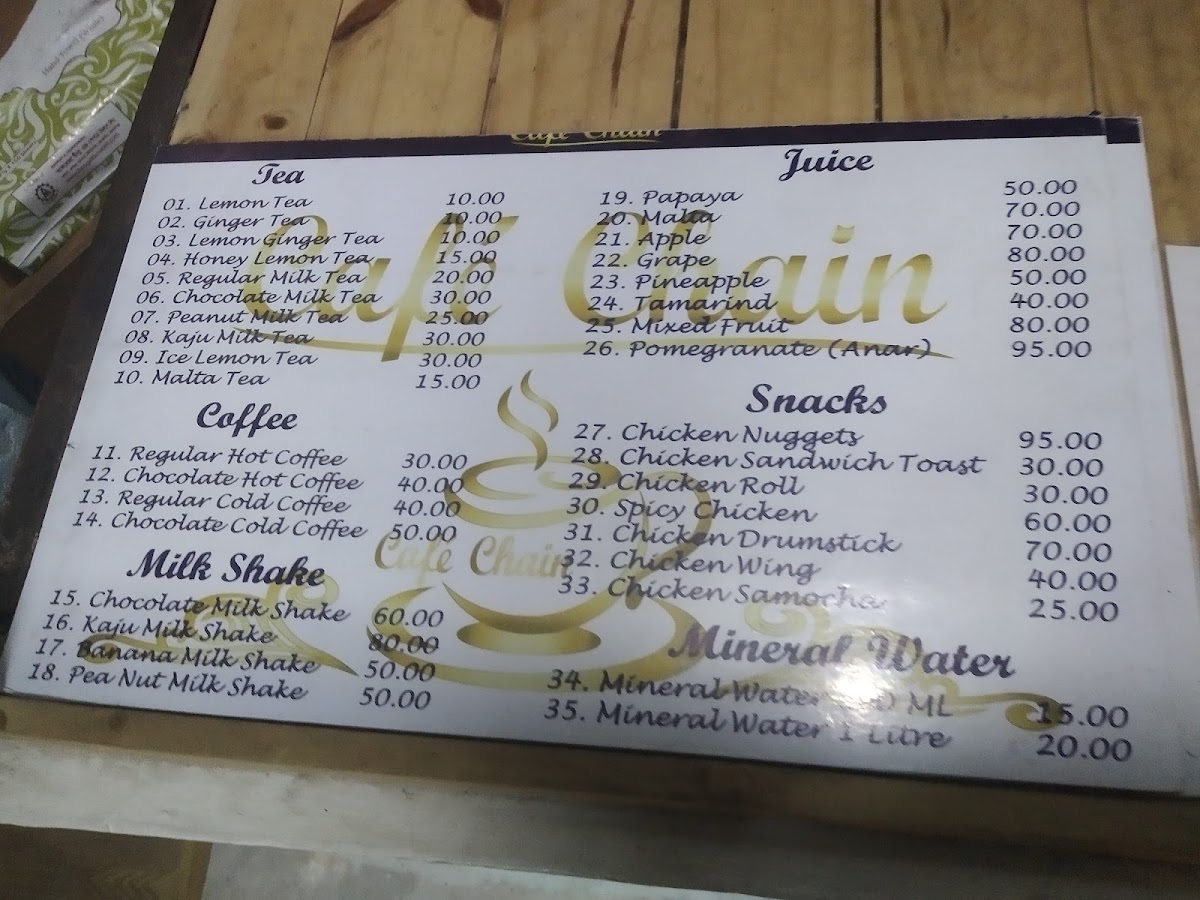 Café Chain
Tea
01. Lemon Tea 10.00
02. Ginger Tea 10.00
03. Lemon Ginger Tea 10.00
04. Honey Lemon Tea 15.00
05. Regular Milk Tea 20.00
06. Chocolate Milk Tea 30.00
07. Peanut Milk Tea 25.00
08. Kaju Milk Tea 30.00
09. Ice Lemon Tea 30.00
10. Malta Tea 15.00
Coffee
11. Regular Hot Coffee 30.00
12. Chocolate Hot Coffee 40.00
13. Regular Cold Coffee 40.00
14. Chocolate Cold Coffee 50.00
Milk Shake
15. Chocolate Milk Shake 60.00
16. Kaju Milk Shake 80.00
17. Banana Milk Shake 50.00
18. Pea Nut Milk Shake 50.00
Juice
19. Papaya 50.00
20. Malta 70.00
21. Apple 70.00
22. Grape 80.00
23. Pineapple 50.00
24. Tamarind 40.00
25. Mixed Fruit 80.00
26. Pomegranate (Anar) 95.00
Snacks
27. Chicken Nuggets 95.00
28. Chicken Sandwich Toast 30.00
29. Chicken Roll 30.00
30. Spicy Chicken 60.00
31. Chicken Drumstick 70.00
32. Chicken Wing 40.00
33. Chicken Samocha 25.00
Mineral Water
34. Mineral Water ML 15.00
35. Mineral Water 1 Litre 20.00
Café Chain
Café Chain